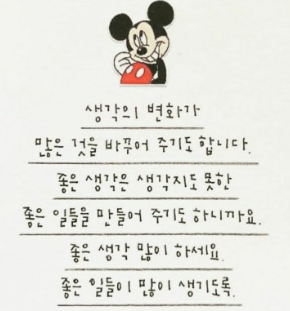 생각의 변화가
많은 것을 바꾸어 주기도 합니다.
좋은 생각은 생각지도 못한
좋은 일들을 만들어 주기도 하니까요.
좋은 생각 많이 하세요.
좋은 일들이 많이 생기도록.